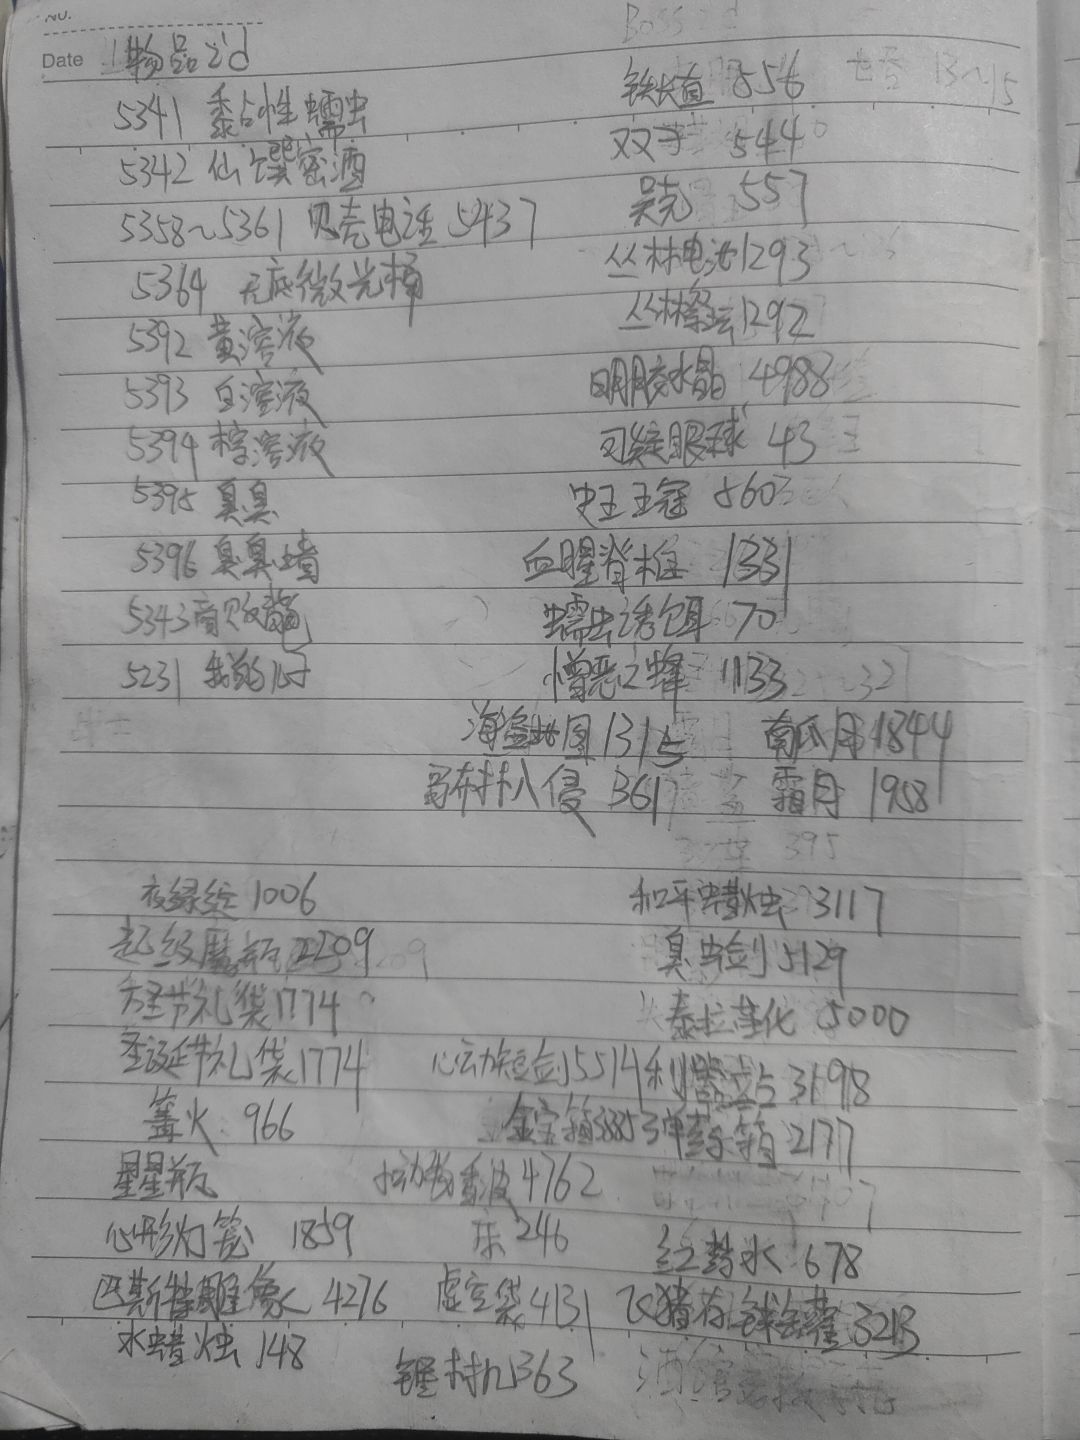 NO.
Date 物品id
5341 黏性蠕虫
5342 仙馔密酒
5358～5361 贝壳电话 5437
5364 无底微光桶
5392 黄溶液
5393 白溶液
5394 棕溶液
5395 臭臭
5396 臭臭墙
5343
5231
Boss id
铁长直 556
双子 544
557
丛林电池1293
丛林祭坛1292
明胶水晶 4988
可疑眼球 43
史王王冠 560
血腥脊椎 1331
蠕虫诱饵 70
憎恶之蜂 1133
海盗地图 1315 南瓜月 1844
入侵 霜月 1958
1006 和平蜡烛 3117
超级魔瓶 2209 臭虫剑 5129
节礼袋1774 泰拉 5000
圣诞节礼袋1774 心动短剑5514 利器站 3198
篝火 966 金宝箱 弹药箱 2177
星星瓶 4762
心形灯笼 1859 床 246 红药水 678
巴斯特雕像 4276 虚空袋 4131 猪存钱罐 3213
水蜡烛 148
锯材机363